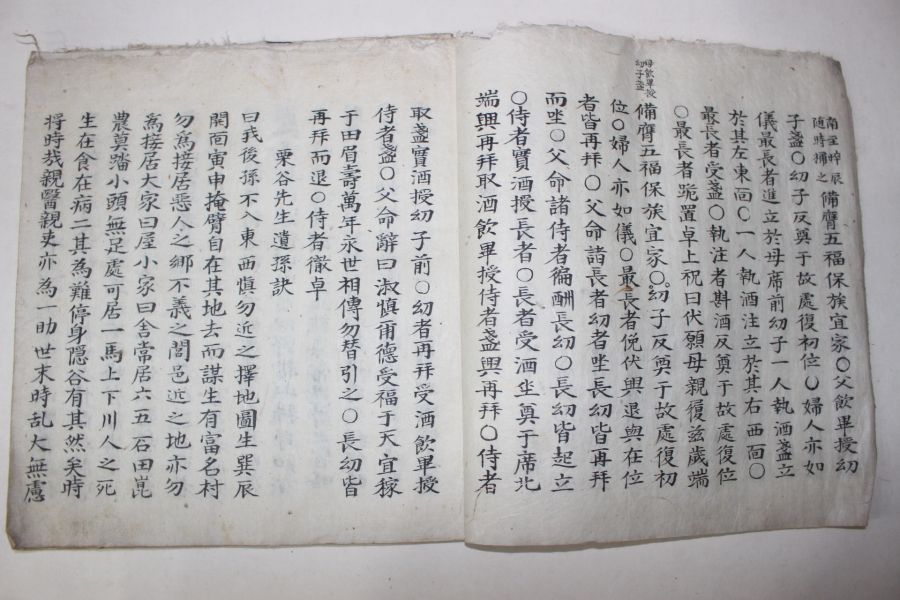 南至晬辰
随時稱之
備膺五福保族宜家〇父飲畢授幼
子盞〇幼子反奠于故處復初位〇婦人亦如
儀最長者進立於母席前幼子一人執酒盞立
於其左東面〇一人執酒注立於其右西面〇
最長者受盞〇執注者斟酒反奠于故處復位
〇最長者跪置卓上祝曰伏願母親履玆歲端
母飲畢授
幼子盞
備膺五福保族宜家〇幼子反奠于故處復初
位〇婦人亦如儀〇最長者俛伏興退與在位
者皆再拜〇父命諸長者幼者坐長幼皆再拜
而坐〇父命諸侍者徧酬長幼〇長幼皆起立
〇侍者實酒授長者〇長者受酒坐奠于席北
端興再拜取酒飲畢授侍者盞興再拜〇侍者
取盞實酒授幼子前〇幼者再拜受酒飲畢授
侍者盞〇父命辭曰淑愼甭德受福于天宜稼
于田眉壽萬年永世相傳勿替引之〇長幼皆
再拜而退〇侍者徹卓
栗谷先生遺孫訣
曰我後孫不入東西愼勿近之擇地圖生巽辰
開面寅申掩臂自在其地去而謀生有富名村
勿爲接居惡人之鄉不義之閭邑近之地亦勿
爲接居大家曰屋小家曰舍常居六五石田崑
農莫踏小頭無足處可居一馬上下川人之死
生在食在病二其為難停身隱谷有其然矣時
將時㢤親醫親吏亦為一助世末時乱大無慮